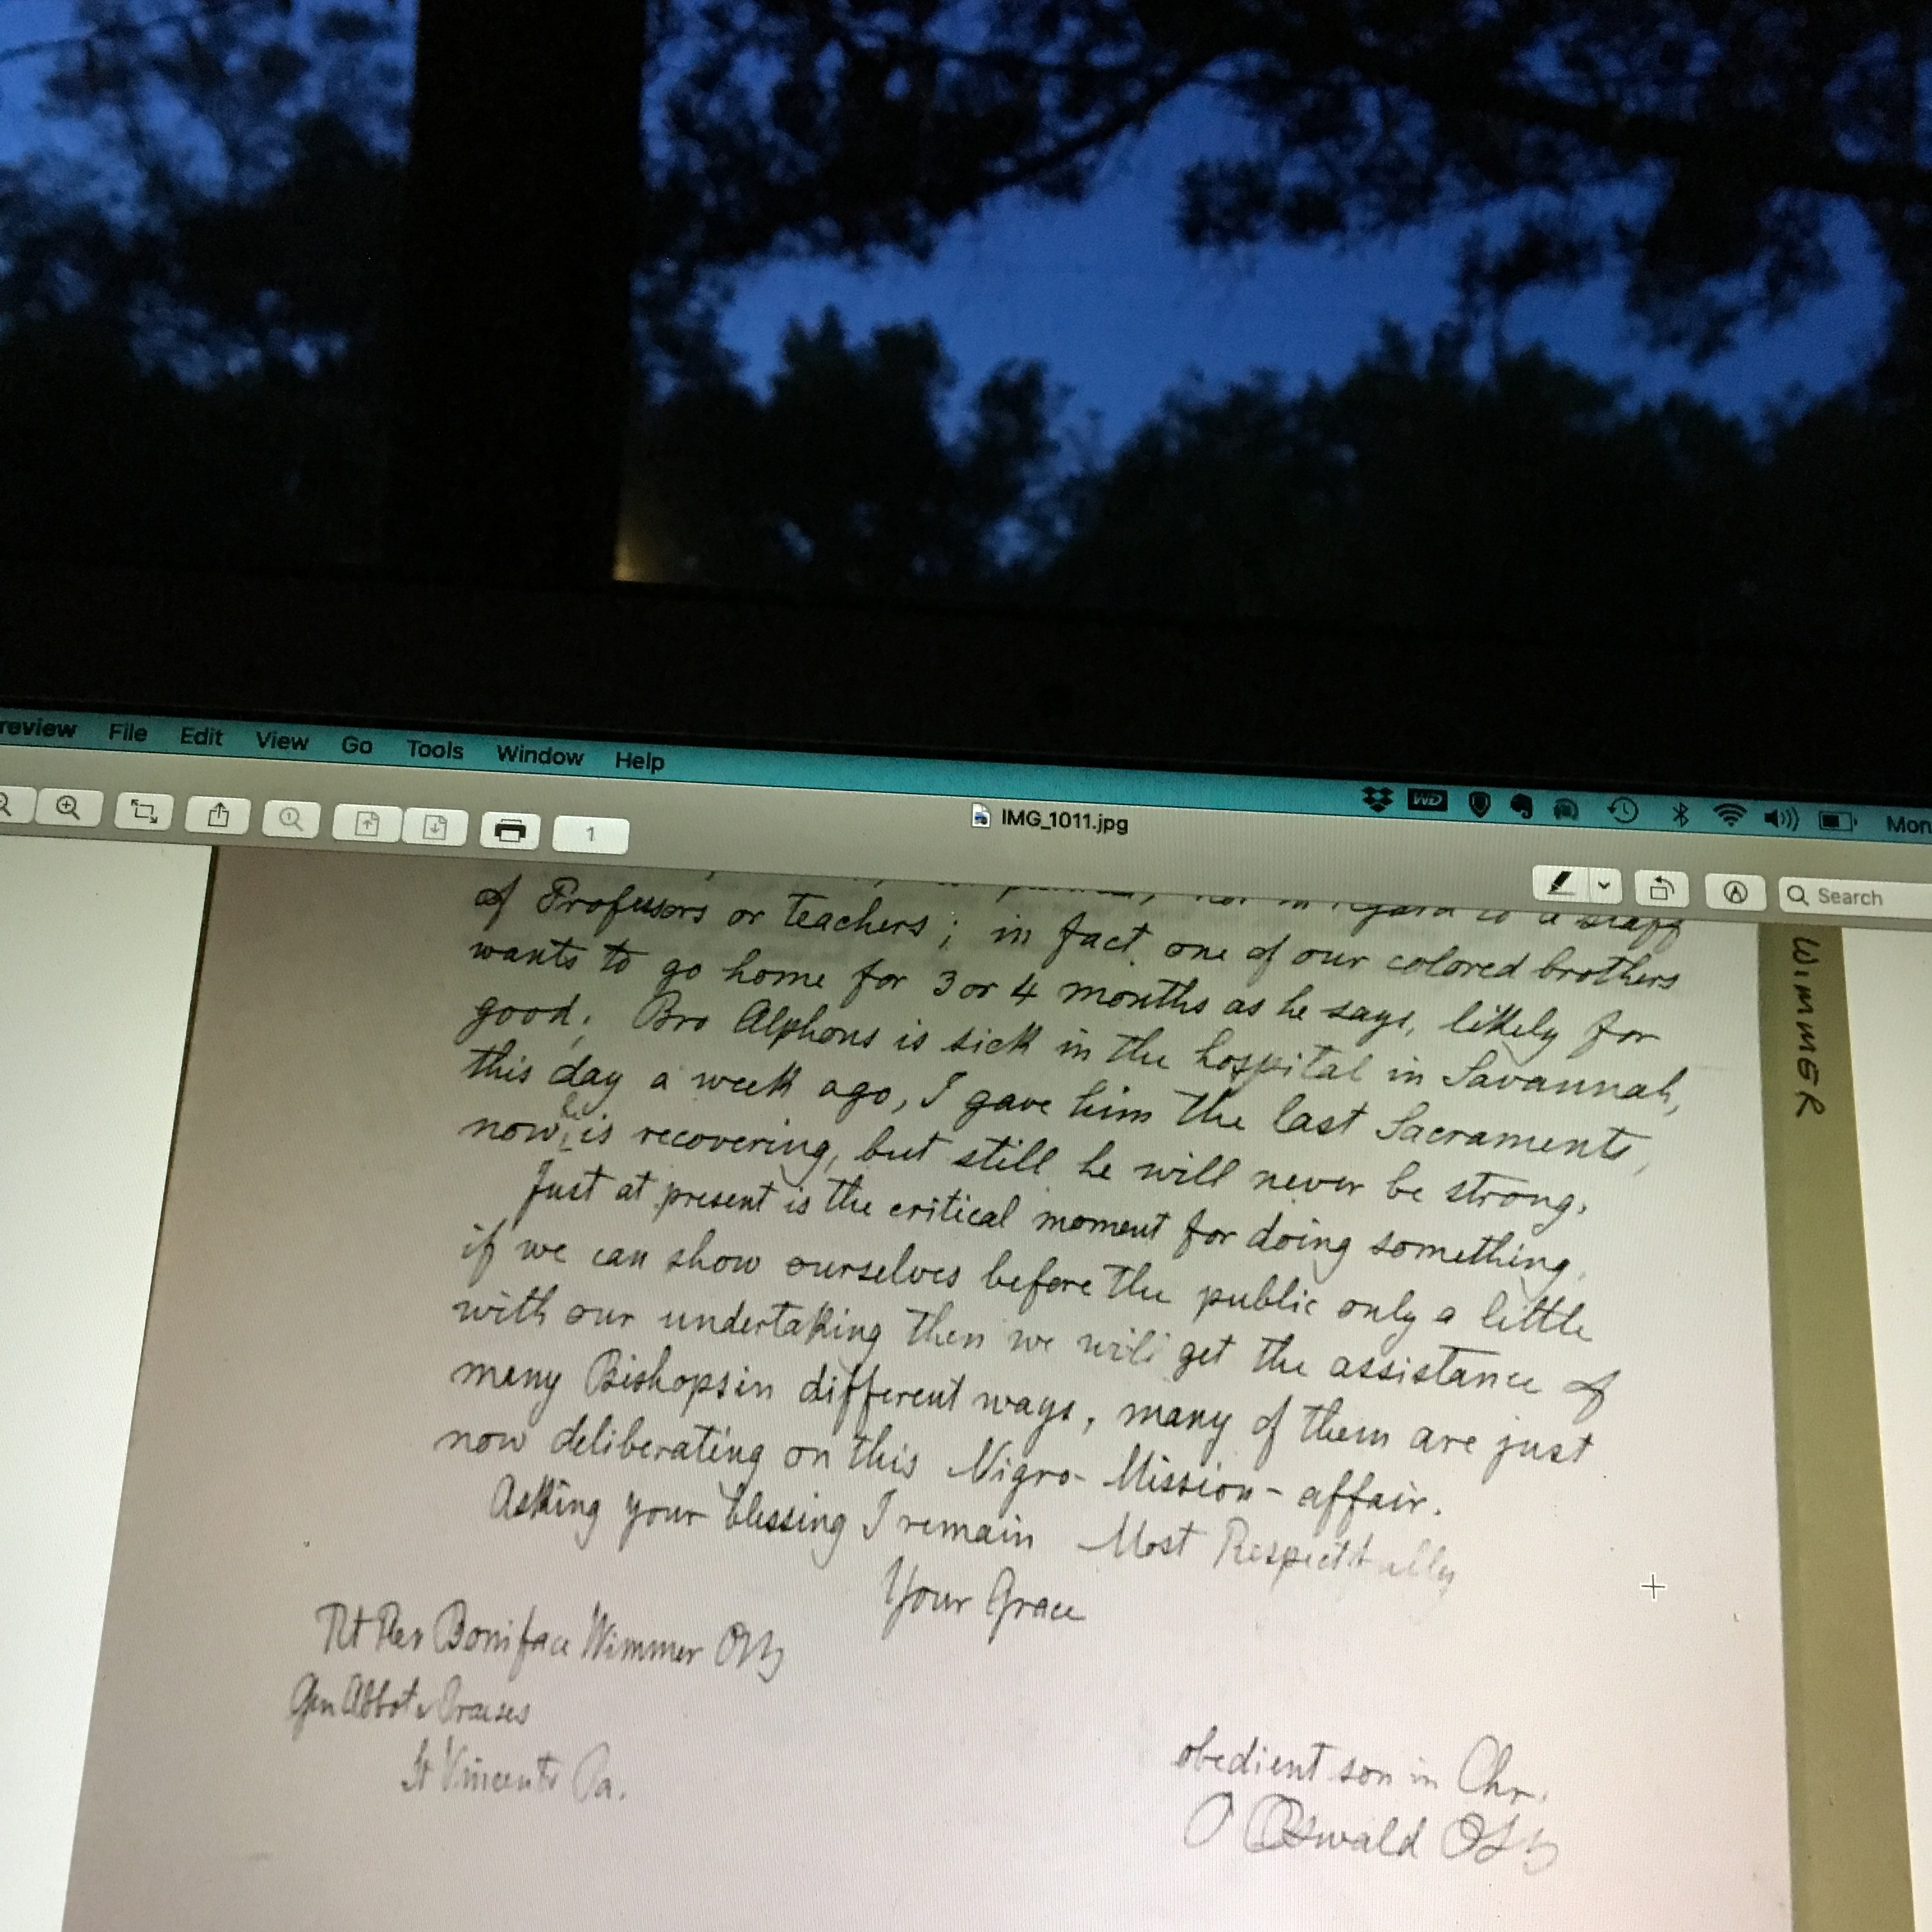 review File Edit View Go Tools Window Help
WD Mon
1
IMG_1011.jpg
Search
not in regard to a staff
of Professors or teachers; in fact one of our colored brothers
wants to go home for 3 or 4 months as he says, likely for
good. Bro Alphons is sick in the hospital in Savannah,
this day a week ago, I gave him the last Sacraments,
now he is recovering, but still he will never be strong.
Just at present is the critical moment for doing something,
if we can show ourselves before the public only a little
with our undertaking then we will get the assistance of
many Bishops in different ways, many of them are just
now deliberating on this Nigro-Mission-affair.
Asking your blessing I remain Most Respectfully
Your Grace
Rt Rev Boniface Wimmer OSB
Gen Abbot & Praeses
St Vincents Pa.
obedient son in Chr.
P Oswald OSB
WIMMER